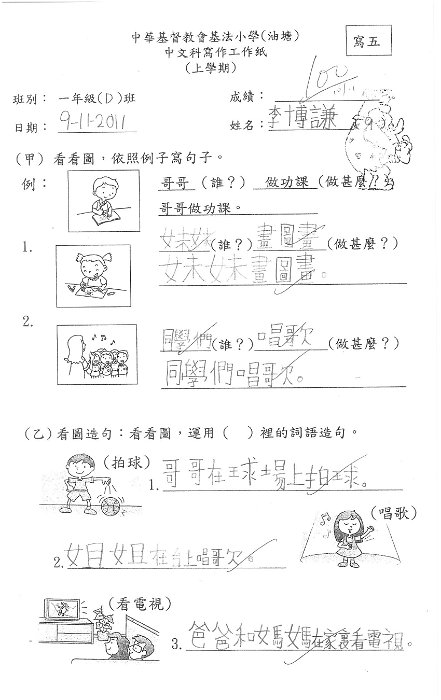 中華基督教會基法小學(油塘)
寫五
中文科寫作工作紙
(上學期)
班別： 一年級(D)班 成績： 100
日期： 9-11-2011 姓名： 李博謙
(甲) 看看圖，依照例子寫句子。
例： 哥哥 (誰？) 做功課 (做甚麼？)
哥哥做功課。
1. 妹妹(誰？) 畫圖畫 (做甚麼？)
妹妹畫圖書。
2. 同學們(誰？) 唱歌 (做甚麼？)
同學們唱歌。
(乙) 看圖造句：看看圖，運用（ ）裡的詞語造句。
(拍球)
1. 哥哥在球場上拍球。
(唱歌)
2. 姐姐在台上唱歌。
(看電視)
3. 爸爸和媽媽在家裏看電視。